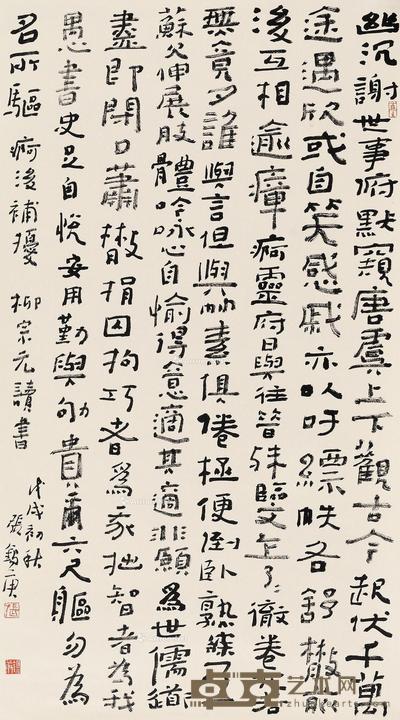 幽沉謝世事俯默窺唐虞上下觀古今起伏千萬
途遇欣或自笑感戚亦以吁縹帙各舒散前
後互相逾瘴痾靈府日與往昔殊臨文乍了了徹卷兀若
無竟夕誰與言但與竹素俱倦極便倒臥熟寐乃一
蘇欠伸展肢體吟咏心自愉得意適其適非願為世儒道
盡即閉口蕭散捐囚拘巧者為我拙智者為我
愚書史足自悅安用勤與劬貴爾六尺軀勿為
名所驅 痾後補擾 柳宗元讀書
戊戌初秋
張